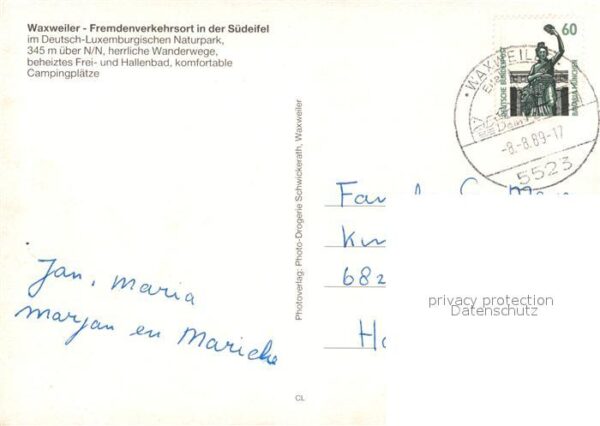 Waxweiler - Fremdenverkehrsort in der Südeifel
im Deutsch-Luxemburgischen Naturpark,
345 m über N/N, herrliche Wanderwege,
beheiztes Frei- und Hallenbad, komfortable
Campingplätze
60
DEUTSCHE BUNDESPOST
BAVARIA MÜNCHEN
WAXWEILER
-8.-8.89-17
5523
Photoverlag: Photo-Drogerie Schwickerath, Waxweiler
Fam
682
privacy protection
Datenschutz
Jan, Maria
Marjan en Marieke
CL